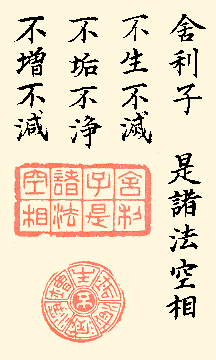 舍利子 是諸法空相
不生不滅
不垢不浄
不増不減
舍利
子是
諸法
空相